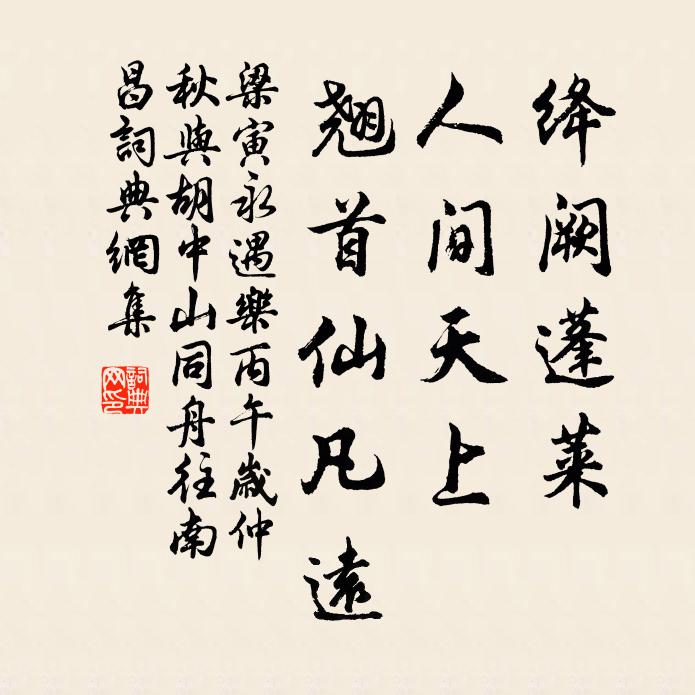 绛阙蓬莱
人间天上
翘首仙凡远
梁寅永遇樂丙午歲仲
秋與胡中山同舟往南
昌詞典網集
詞典
网印